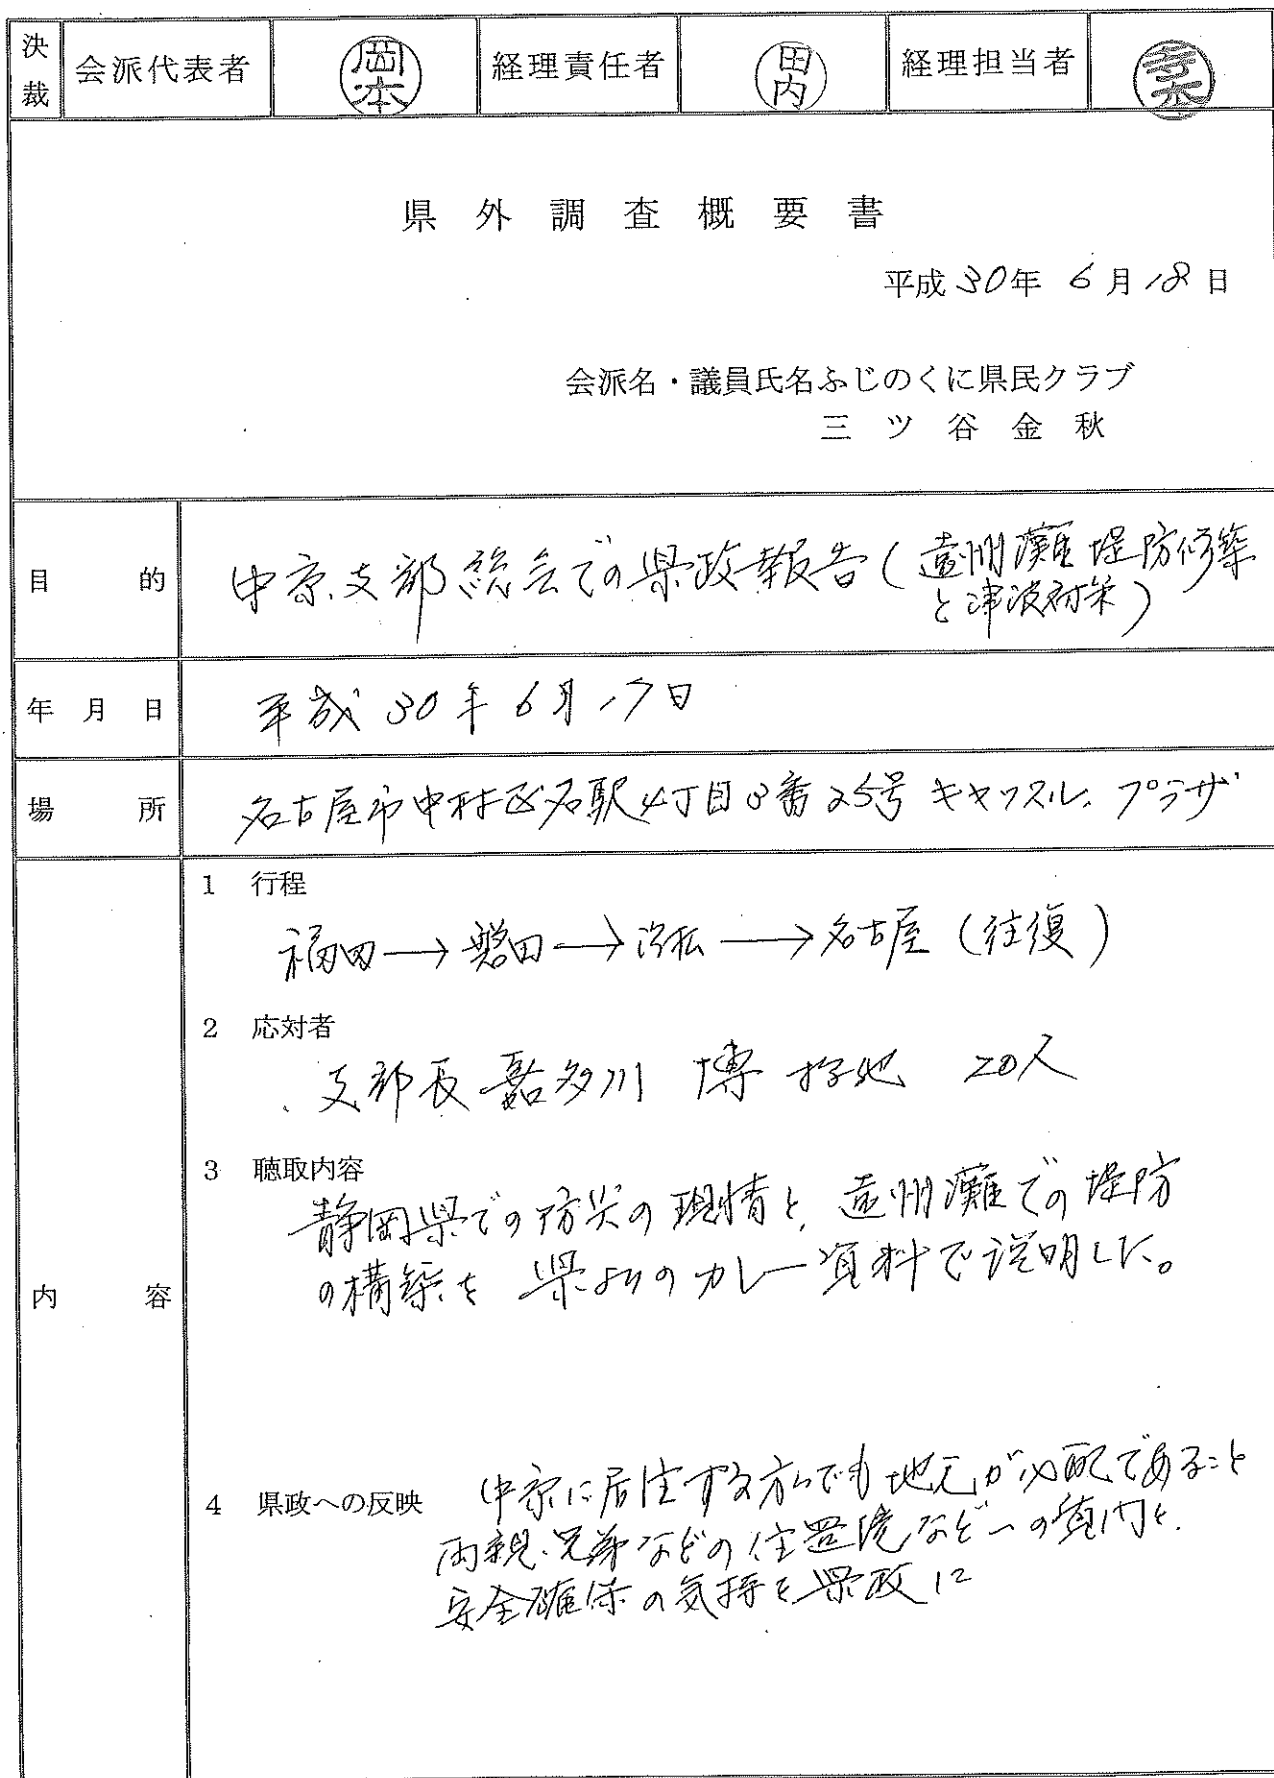 決裁 会派代表者 岡本 経理責任者 田内 経理担当者
県外調査概要書
平成30年 6月18日
会派名・議員氏名ふじのくに県民クラブ
三ツ谷金秋
目的 中京支部総会での県政報告(遠州灘堤防修築
と津波対策)
年月日 平成30年6月17日
場所 名古屋市中村区名駅4丁目3番25号 キャッスルプラザ
内容
1 行程
福田→磐田→浜松→名古屋(往復)
2 応対者
支部長 喜多川 博 他 20人
3 聴取内容
静岡県での防災の現情と、遠州灘での堤防
の構築を 県よりのカレー資料で説明した。
4 県政への反映 中京に居住する方々でも地元が心配であること
両親、兄弟などの住環境などへの質問と、
安全確保の気持を県政に